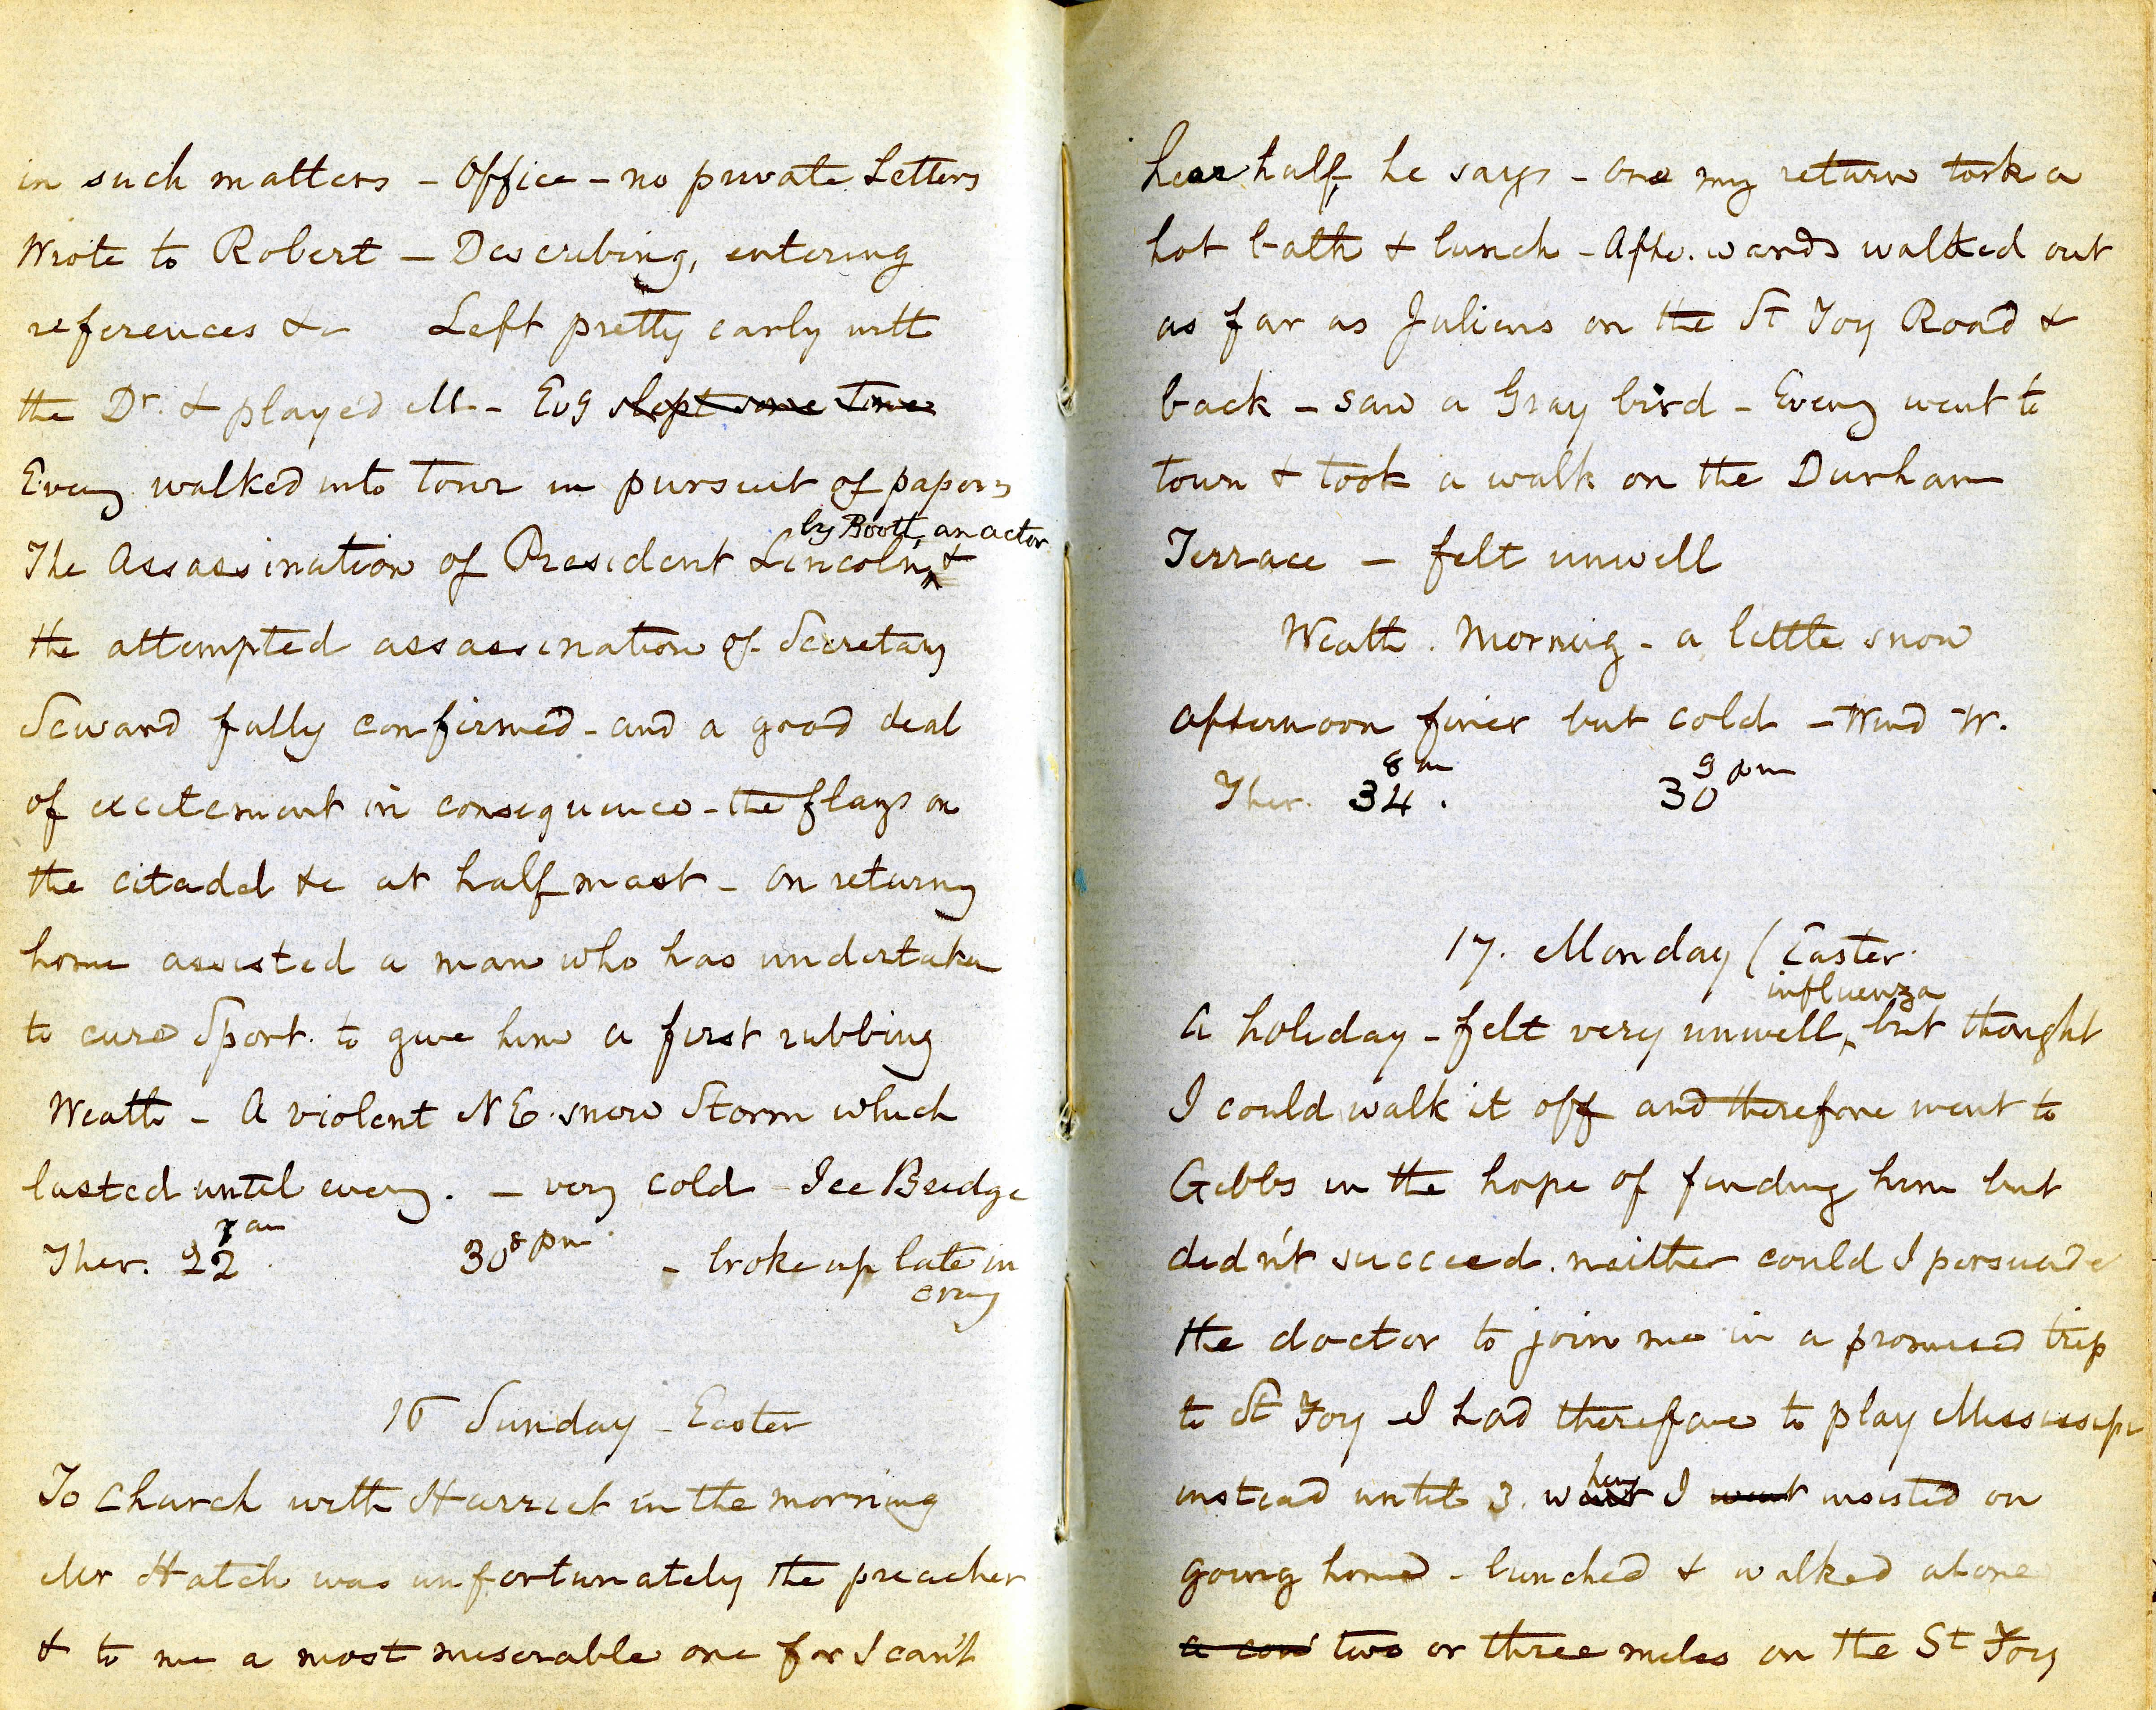 in such matters - Office - no private Letters
Wrote to Robert - Describing, entering
references &c Left pretty early with
the Dr. & played M - Evg slept some time
Eveng walked into town in pursuit of papers
by Booth, an actor
The Assassination of President Lincoln, &
the attempted assassination of Secretary
Seward fully confirmed - and a good deal
of excitement in consequence - the flags on
the citadel &c at half mast - On returng
home assisted a man who has undertaken
to cure Sport. to give him a first rubbing
Weath - A violent NE. snow Storm which
lasted until eveng. - very cold - Ice Bridge
7 am 8 pm
Ther. 22 30 - broke up late in
eveng
16 Sunday - Easter
To Church with Harriet in the morning
Mr Hatch was unfortunately the preacher
& to me a most miserable one for I can't
hear half he says - one my return took a
hot bath & lunch - Afterwards walked out
as far as Juliens on the St Foy Road &
back - saw a Gray bird - Eveng went to
town & took a walk on the Durham
Terrace - felt unwell
Weath. Morning - a little snow
afternoon finer but cold - Wind W.
8 am 9 pm
Ther. 34. 30
17. Monday (Easter.
influenza
A holiday - felt very unwell, but thought
I could walk it off and therefore went to
Gibbs in the hope of finding him but
didn't succeed. neither could I persuade
the doctor to join me in a promised trip
to St Foy - I had therefore to play Mississipi
instead until 3. when I went insisted on
going home - lunched & walked alone
a cou two or three miles on the St Foy